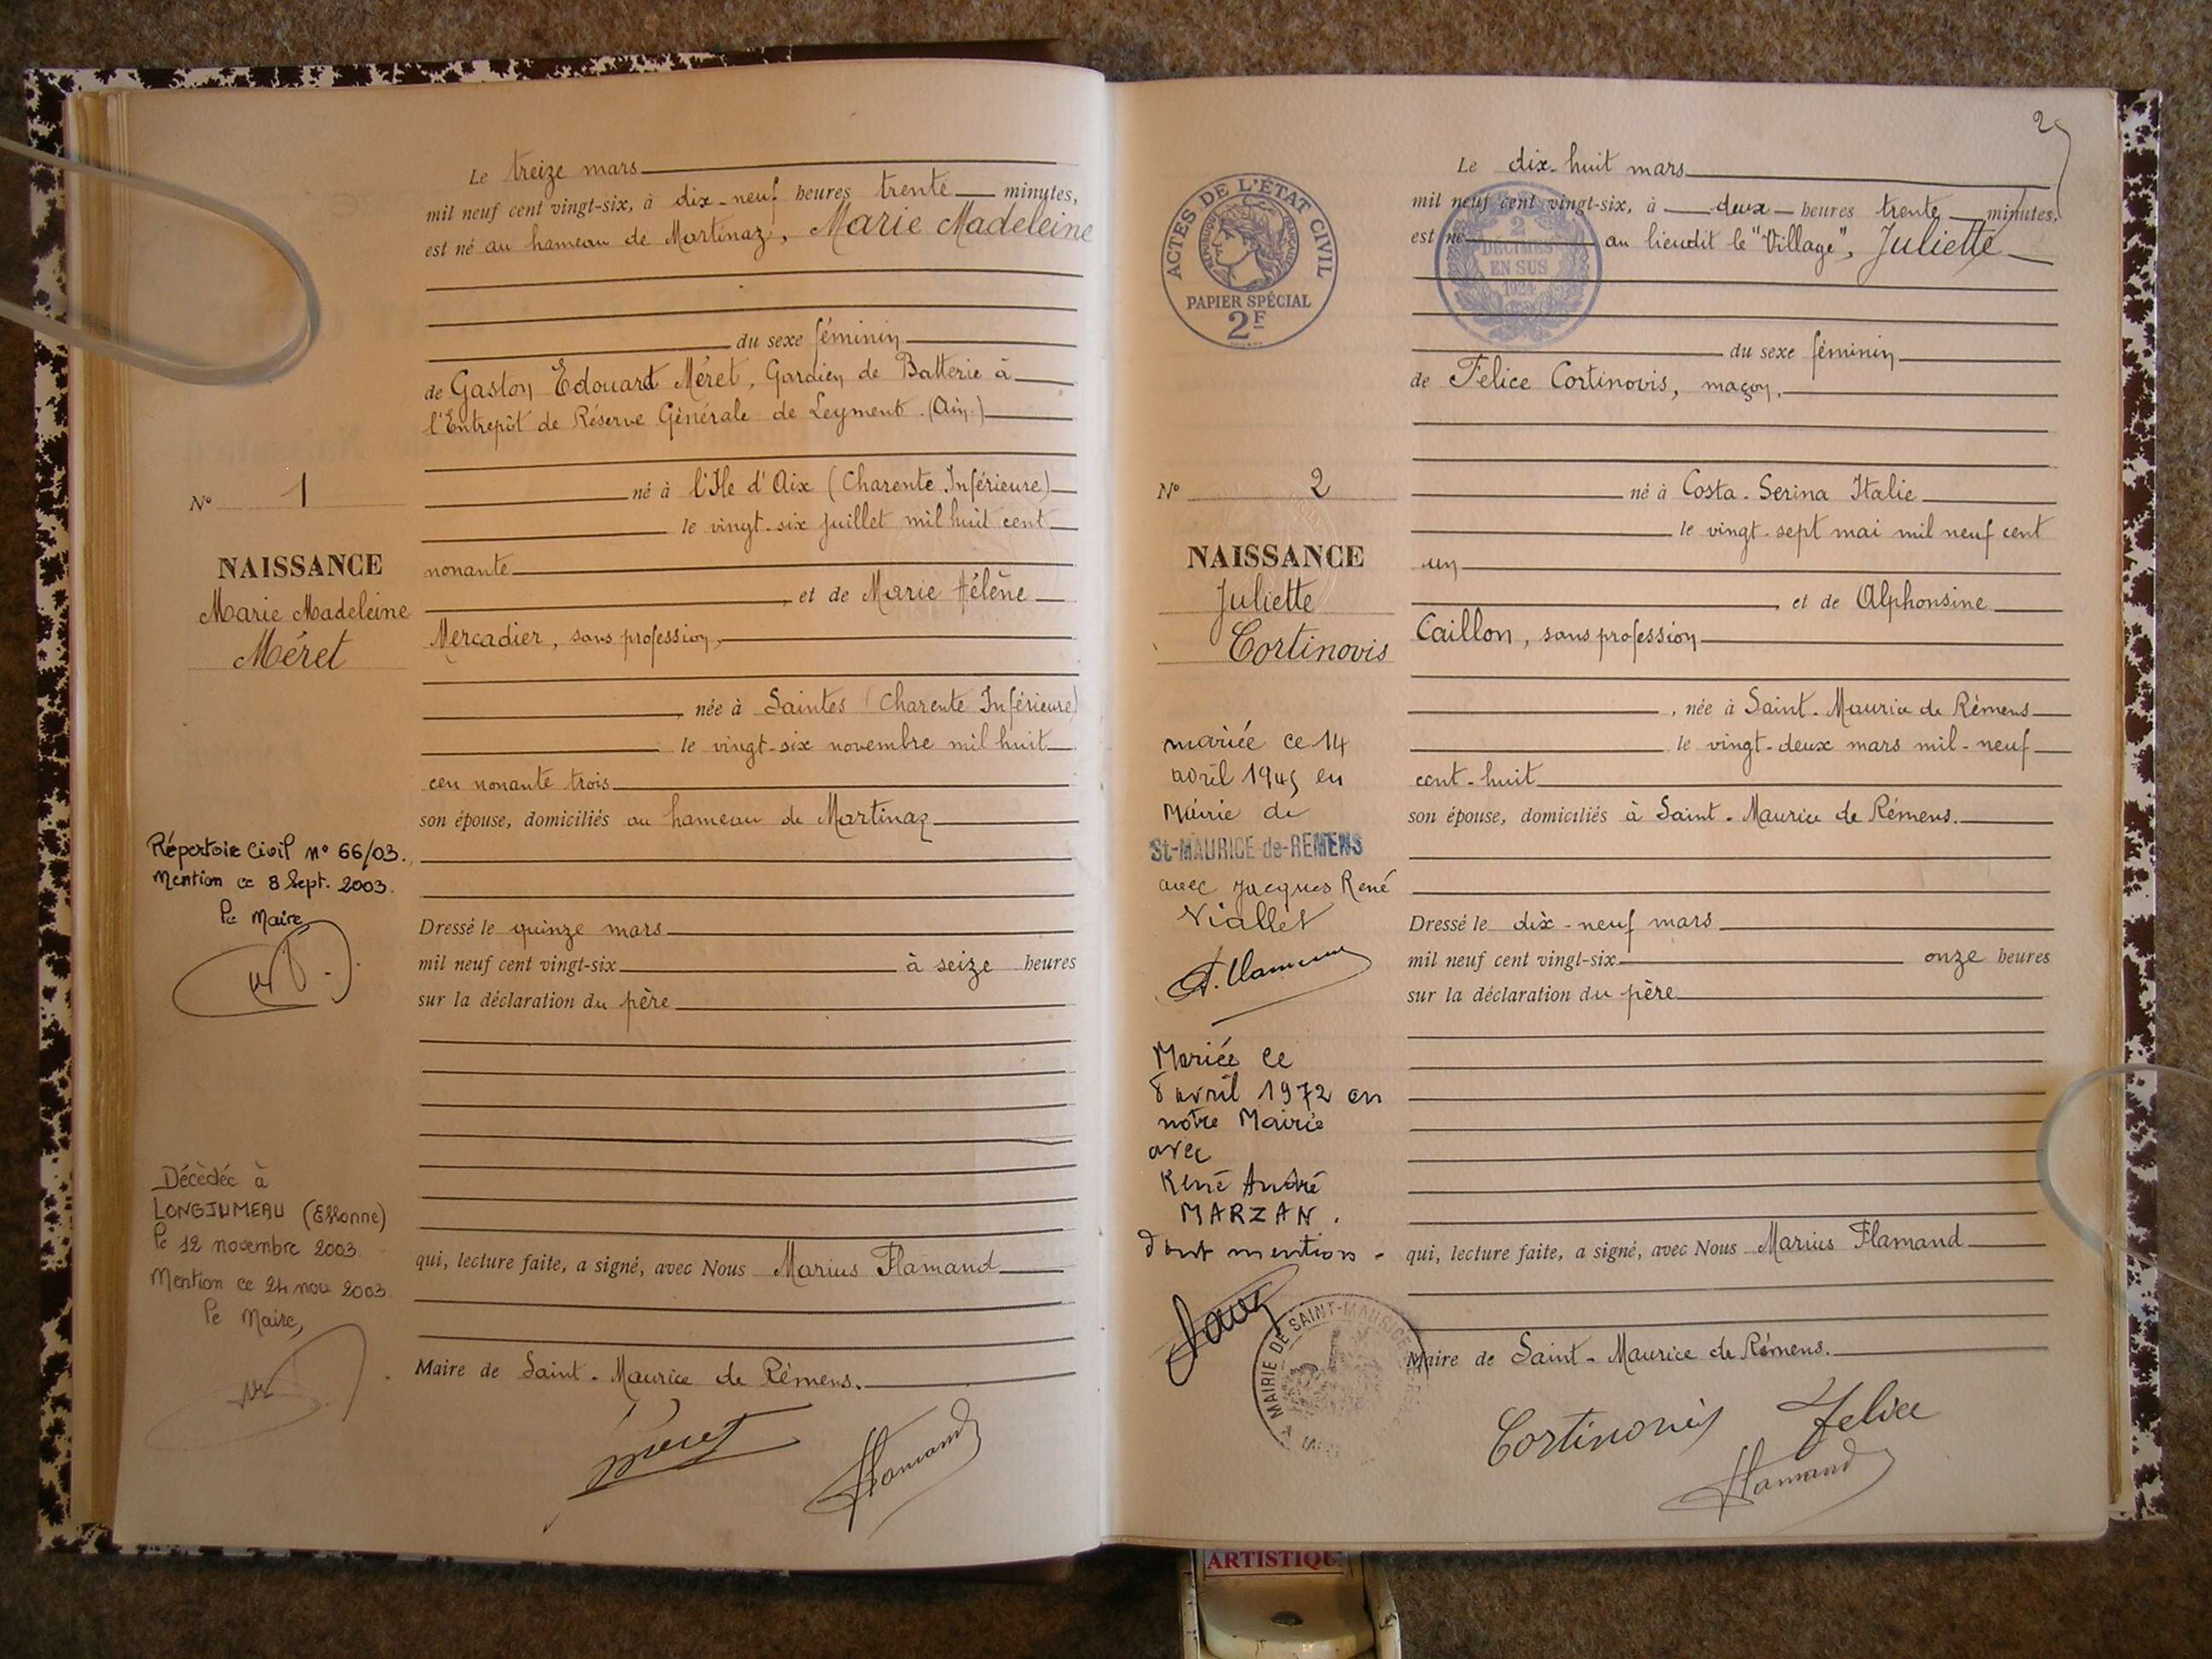 Le treize mars
mil neuf cent vingt-six, à dix-neuf heures trente minutes,
est né au hameau de Martinaz, Marie Madeleine
du sexe féminin
de Gaston Edouard Méret, Gardien de Batterie à
l'Entrepôt de Réserve Générale de Leyment. (Ain)
né à l'Ile d'Aix (Charente Inférieure)
le vingt-six juillet mil huit cent
nonante
et de Marie Hélène
Mercadier, sans profession,
née à Saintes (Charente Inférieure)
le vingt-six novembre mil huit
cen nonante trois
son épouse, domiciliés au hameau de Martinaz
Dressé le quinze mars
mil neuf cent vingt-six à seize heures
sur la déclaration du père
qui, lecture faite, a signé, avec Nous Marius Flamand
Maire de Saint-Maurice de Rémens.
Méret Flamand
No 1
NAISSANCE
Marie Madeleine
Méret
Répertoire Civil n° 66/03.
Mention ce 8 Sept. 2003.
Le Maire
Décèdée à
LONGJUMEAU (Essonne)
le 12 novembre 2003.
Mention ce 24 nov 2003
Le Maire,
2
ACTES DE L'ÉTAT CIVIL
PAPIER SPÉCIAL
2F
2
DÉCIMES
EN SUS
1924
Le dix-huit mars
mil neuf cent vingt-six, à deux heures trente minutes,
est né au lieudit le "Village", Juliette
du sexe féminin
de Felice Cortinovis, maçon,
né à Costa-Serina Italie
le vingt-sept mai mil neuf cent
un
, et de Alphonsine
Caillon, sans profession
, née à Saint-Maurice de Rémens
le vingt-deux mars mil-neuf
cent-huit
son épouse, domiciliés à Saint-Maurice de Rémens.
Dressé le dix-neuf mars
mil neuf cent vingt-six onze heures
sur la déclaration du père
qui, lecture faite, a signé, avec Nous Marius Flamand
Maire de Saint-Maurice de Rémens.
Cortinovis Felice
Flamand
No 2
NAISSANCE
Juliette
Cortinovis
mariée ce 14
avril 1945 en
Mairie de
St-MAURICE-de-REMENS
avec Jacques René
Viallet
Mariée ce
8 avril 1972 en
notre Mairie
avec
René André
MARZAN.
dont mention -
MAIRIE DE SAINT-MAURICE
ARTISTIQU